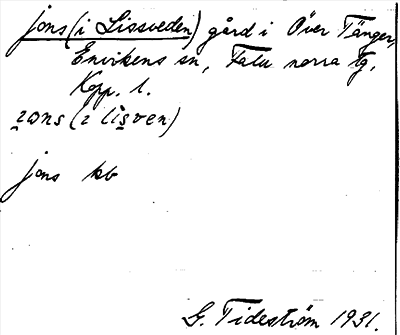 Jons (i Lissveden) gård i Över Tänger,
Envikens sn, Falu norra tg.
Kopp. l.
jons kb
G. Tideström 1931.